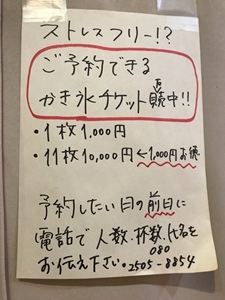 ストレスフリー!?
ご予約できる
かき氷チケット販売中!!
・1枚1,000円
・11枚10,000円←1,000円お徳
予約したい日の前日に
電話で人数、杯数、氏名を
お伝え下さい。080
2505-8854